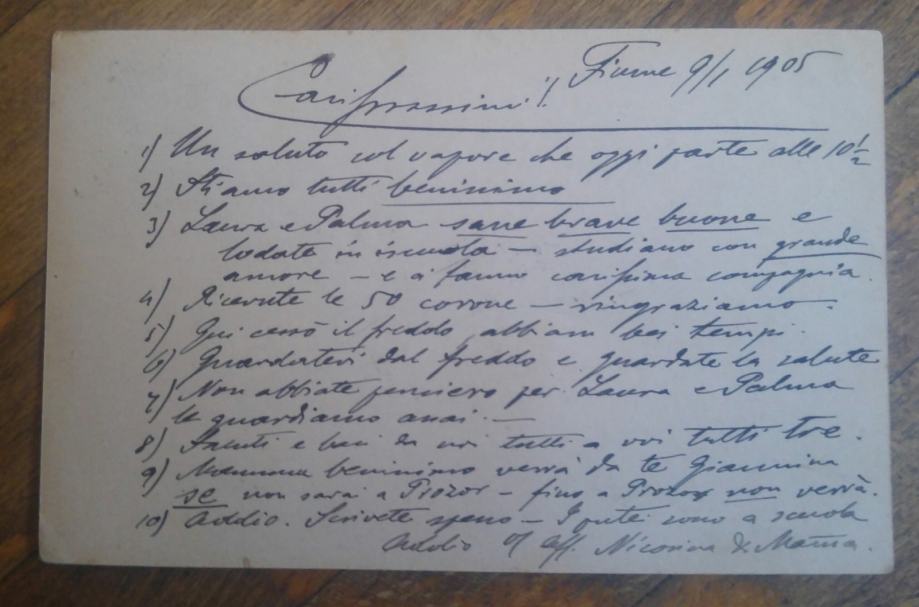 Fiume 9/1 1905
Carissimi!
1) Un saluto col vapore che oggi parte alle 10½
2) Stiamo tutti benissimo
3) Laura e Palma sane brave buone e
lodate in iscuola – studiano con grande
amore – e ci fanno carissima compagnia.
4) Ricevute le 50 corone – ringraziamo.
5) Qui cessò il freddo abbiam bei tempi.
6) Guardatevi dal freddo e guardate la salute
7) Non abbiate pensiero per Laura e Palma
le guardiamo assai. –
8) Saluti e baci da noi tutti a voi tutti tre.
9) Mamma benissimo verrà da te Giannina
se non sarai a Prozor – fino a Prozor non verrà.
10) Addio. Scrivete spesso – I putei sono a scuola
Addio aff. Nicorina & Mama.